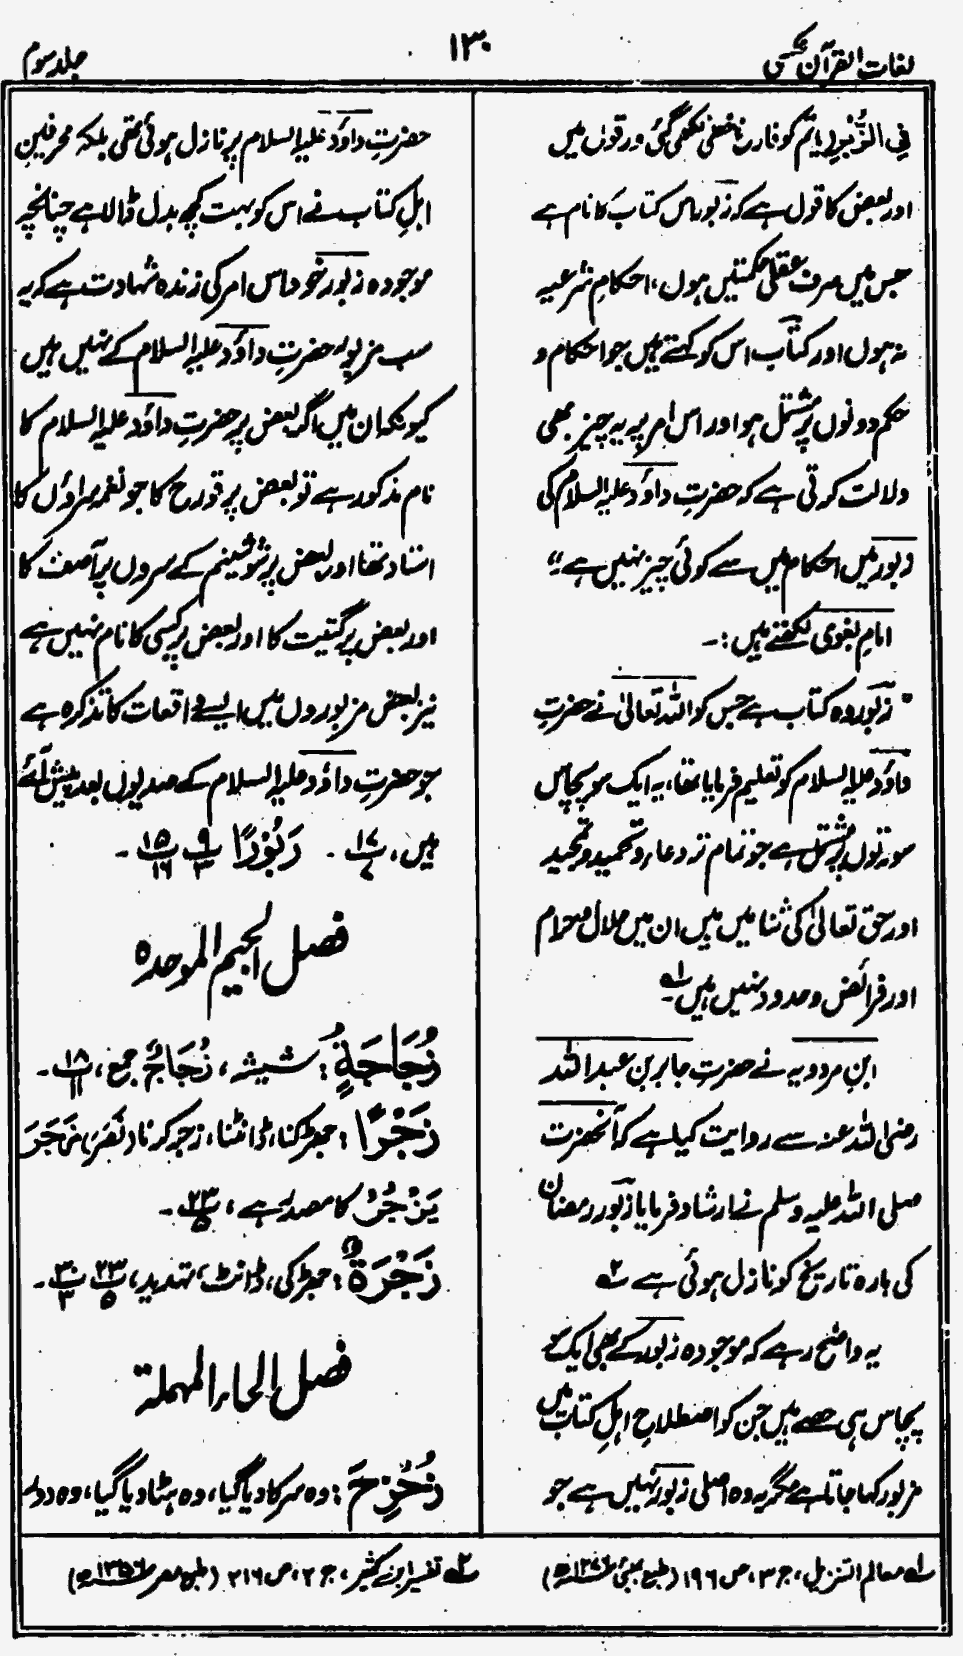 لغات القرآن عکسی
۱۳۰
جلد سوم
فِي الزُّبُرِ ایم کو فارن خفی لکھی گئی ورقوں میں
اور بعض کا قول ہے کہ زبور اس کتاب کا نام ہے
جس میں صرف عقلی حکمتیں ہوں، احکامِ شرعیہ
نہ ہوں اور کتاب اس کو کہتے ہیں جو احکام و
حکم دونوں پر مشتمل ہو اور اس امر پر یہ چیز بھی
دلالت کرتی ہے کہ حضرتِ داؤد علیہ السلام کی
زبور میں احکام میں سے کوئی چیز نہیں ہے؛"
امامِ بغوی لکھتے ہیں :-
" زبور وہ کتاب ہے جس کو اللہ تعالیٰ نے حضرتِ
داؤد علیہ السلام کو تعلیم فرمایا تھا، یہ ایک سو پچاس
سورتوں پر مشتمل ہے جو تمام تر دعاء و تحمید و تمجید
اور حق تعالیٰ کی ثنا میں ہیں ان میں حلال و حرام
اور فرائض و حدود نہیں ہیں۔ لہ
ابنِ مردویہ نے حضرتِ جابر بن عبد اللہ
رضی اللہ عنہ سے روایت کیا ہے کہ آنحضرت
صلی اللہ علیہ وسلم نے ارشاد فرمایا زبور رمضان
کی بارہ تاریخ کو نازل ہوئی ہے ۲ہ
یہ واضح رہے کہ موجودہ زبور کے بھی ایک سو
پچاس ہی حصے ہیں جن کو اصطلاحِ اہلِ کتاب میں
مزبور کہا جاتا ہے مگر یہ وہ اصلی زبور نہیں ہے جو
حضرتِ داؤد علیہ السلام پر نازل ہوئی تھی بلکہ محرفینِ
اہلِ کتاب نے اس کو بہت کچھ بدل ڈالا ہے چنانچہ
موجودہ زبور خود اس امر کی زندہ شہادت ہے کہ یہ
سب مزبور حضرتِ داؤد علیہ السلام کے نہیں ہیں
کیونکہ ان میں اگر بعض پر حضرتِ داؤد علیہ السلام کا
نام مذکور ہے تو بعض پر قورح کا جو نغمہ سراؤں کا
استاد تھا اور بعض پر شوشینم کے سروں پر آصف کا
اور بعض پر گتیت کا اور بعض پر کسی کا نام نہیں ہے
نیز بعض مزبوروں میں ایسے واقعات کا تذکرہ ہے
جو حضرتِ داؤد علیہ السلام کے صدیوں بعد پیش آئے
ہیں، ۱۷/۷ - زَبُوْرًا ۹/۳ ۱۵/۱۶ -
فصل الجیم الموحدہ
زُجَاجَةٍ: شیشہ، زُجَاجٌ جمع، ۱۸/۱۱ -
زَجْرًا: جھڑکنا، ڈانٹنا، زجر کرنا (نَصَرَ) زَجَرَ
یَزْجُرُ کا مصدر ہے، ۲۳/۵ -
زَجْرَةٌ: جھڑکی، ڈانٹ، تہدید، ۲۳/۵ ۳۰/۳ -
فصل الحاء المہملۃ
زُحْزِحَ: وہ سرکا دیا گیا، وہ ہٹا دیا گیا، وہ دور
لہ معالم التنزیل، ج ۳، ص ۱۹۶ (طبع بمبئی
۲ہ تفسیر ابن کثیر، ج ۲، ص ۲۱۶ (طبع مصر ۱۳۵۶ھ)